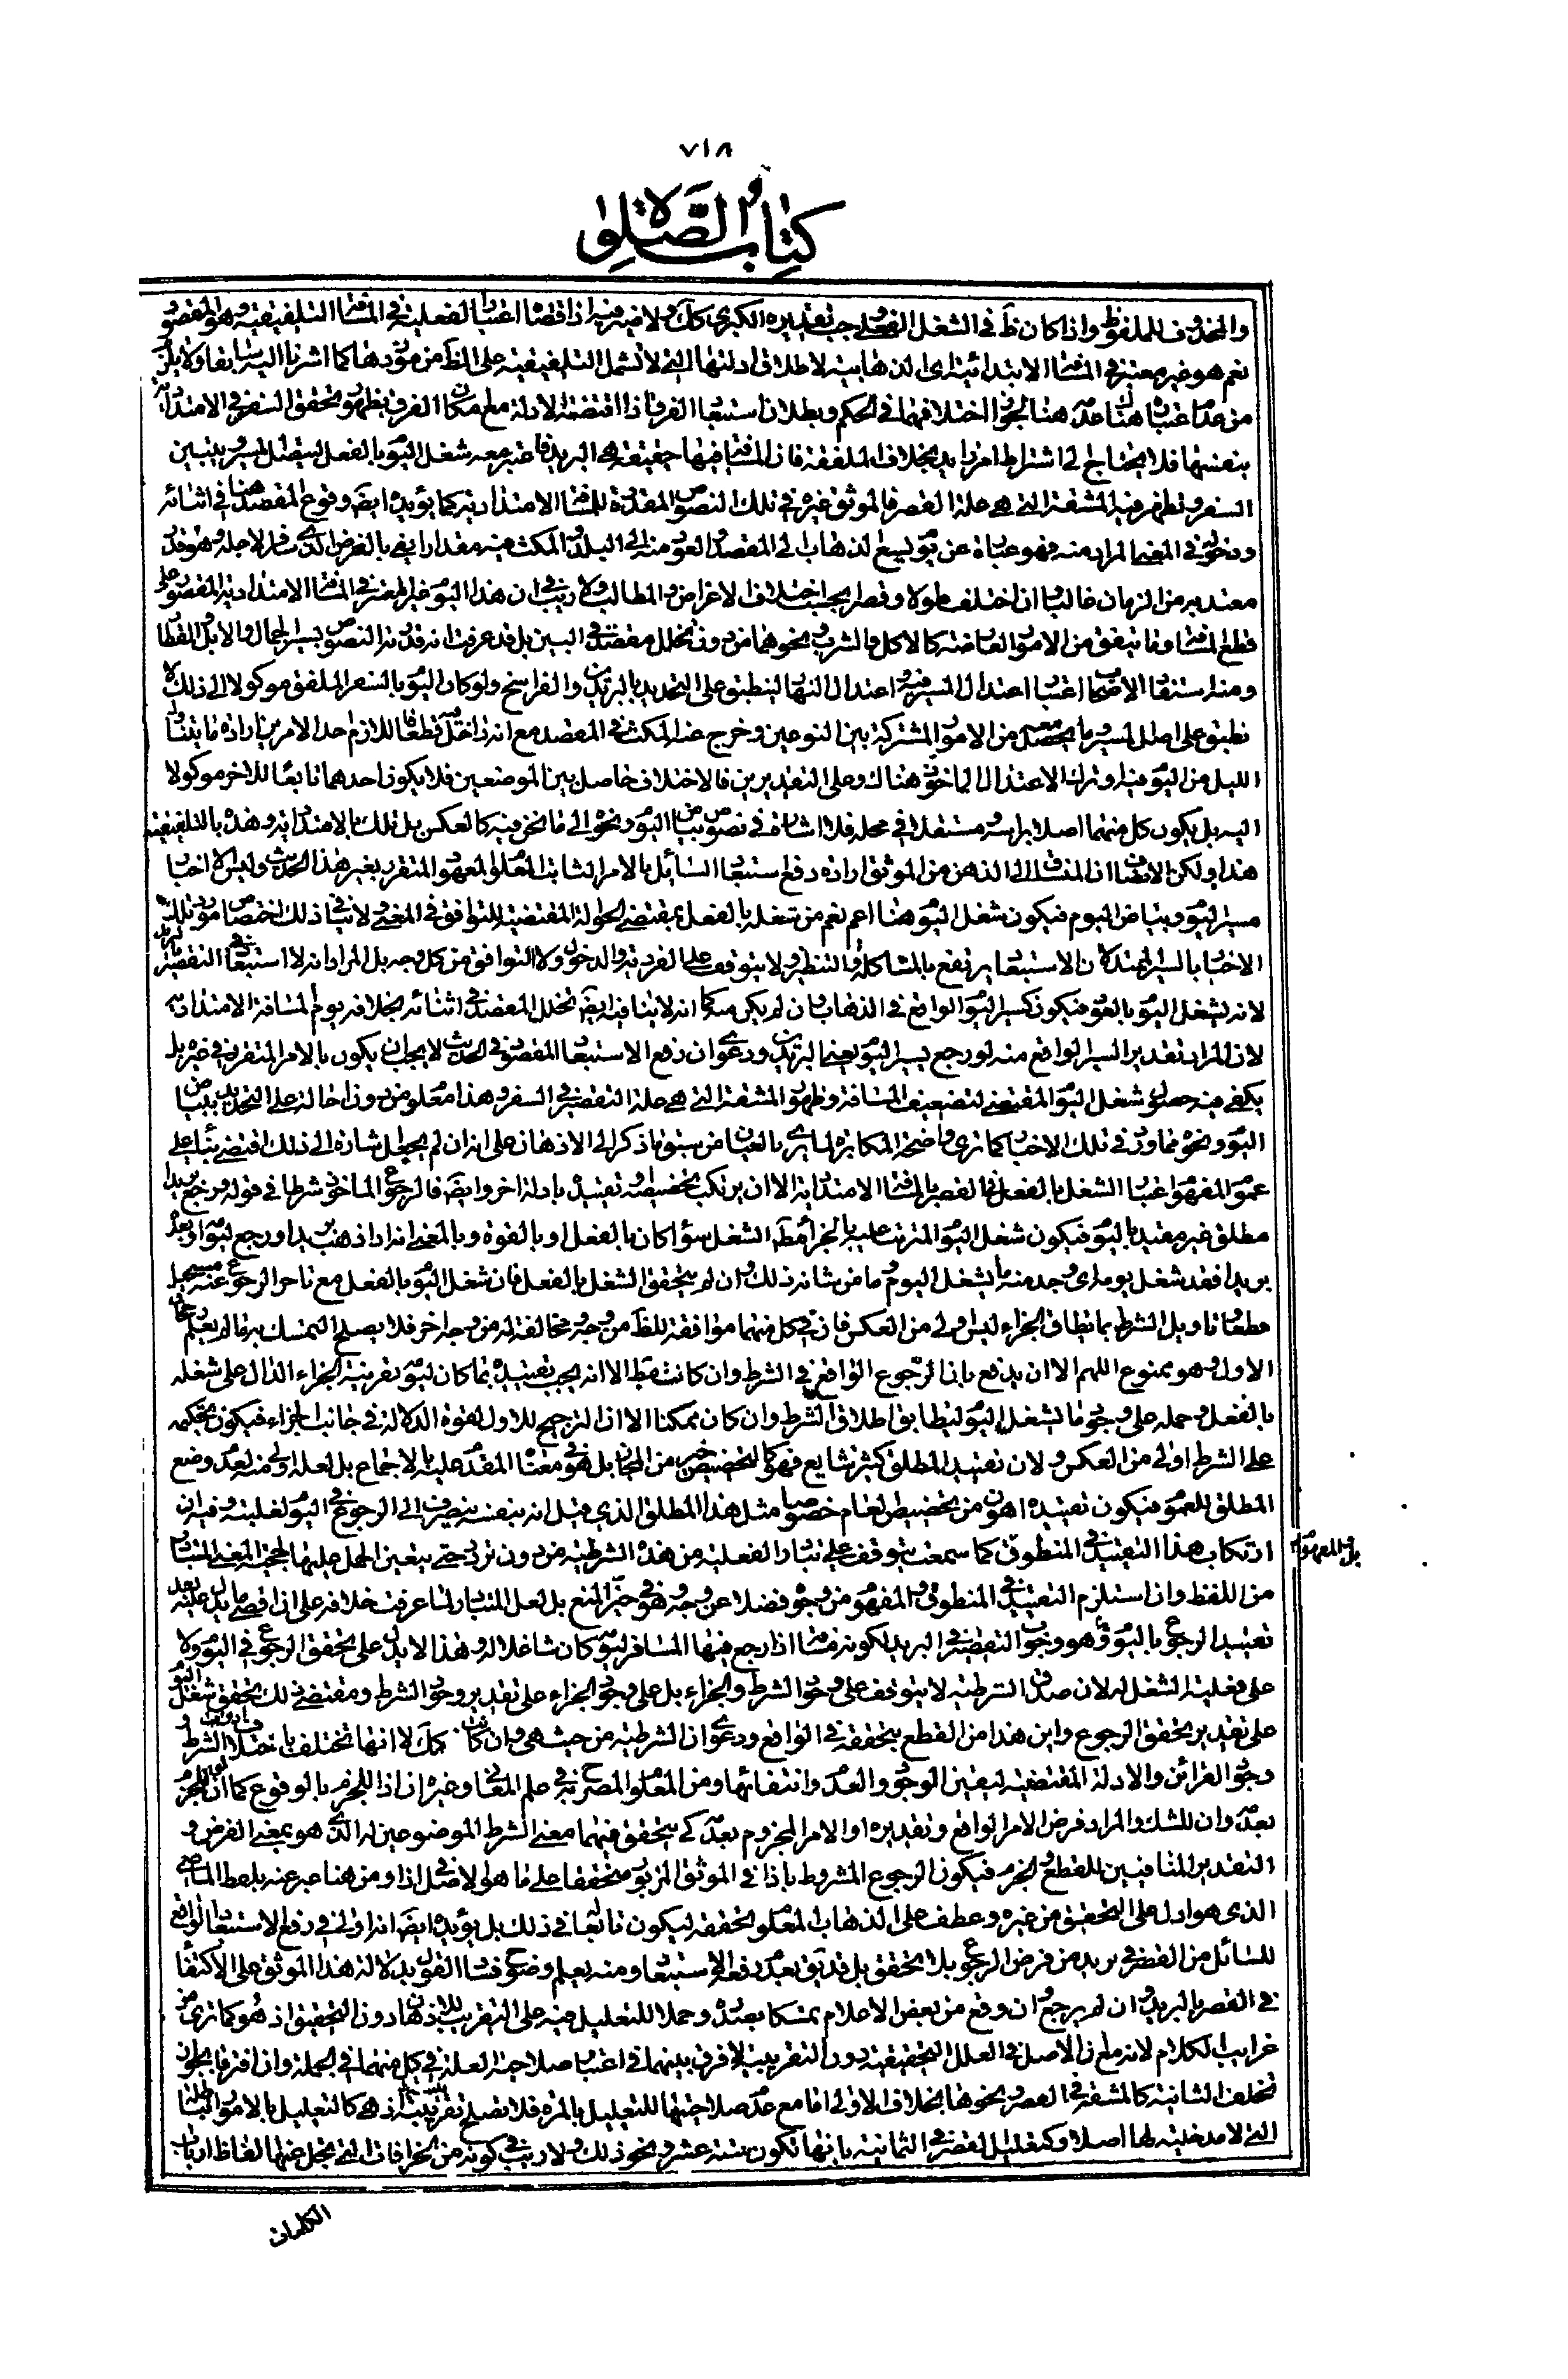 ٧١٨
كتاب الصلوة
والمحذوف للملفوظ واذا كان ظ في الشغل الفعلي وجب تقديره الكبرى كك ولا ضير فيه اذ اقصاه اعتبار الفعلية في المسافة التلفيقية وهو المقصود
نعم هو غير معتبر في المسافة الابتدائية اى الذهابية لاطلاق ادلتها التي لا تشمل التلفيقية على الظ من موردها كما اشرنا اليه سابقا ولا يلزم
من عدم اعتباره هناك عدمه هنا لجواز اختلافهما في الحكم وبطلان استبعاد الفرق اذا اقتضته الادلة مع امكان الفرق بظهور تحقق السفر في الامتدادية
بنفسها فلا يحتاج الى اشتراط امر زايد بخلاف الملفقة فان المسافة فيها حقيقة هى البريد فاعتبر معه شغل اليوم بالفعل ليتصل السير يتبين
السفر وتظهر فيه المشقة التي هي علة القصر فالموثق غيره في تلك النصوص المقدرة للمسافة الامتدادية كما يؤيده ايض وقوع المقصد هنا في اثنائه
ودخوله في المعنى المراد منه فهو عبارة عن يوم يسع الذهاب الى المقصد والعود منه الى البلد والمكث فيه مقدار ما يفي بالغرض الذى سافر لاجله وهو قدر
معتد به من الزمان غالبا وان اختلف طولا وقصرا بحسب اختلاف الاغراض والمطالب ولا ريب في ان هذا اليوم غير المعتبر في المسافة الامتدادية المقصور على
قطع المسافة وما يتفق من الامور العارضة كالاكل والشرب ونحوهما من دون تخلل مقصد في البين بل قد عرفت انه قدر في النصوص بسير الجمال والابل القطار
ومنه استفاد الاصحاب اعتبار اعتدال السير فيه واعتدال النهار لينطبق على التحديد بالبريدين والفراسخ ولو كان اليوم بالسفر الملفق موكولا الى ذلك لا
نطبق على اصل المسير وما يحصل معه من الامور المشتركة بين النوعين وخرج عنه المكث في المقصد مع انه داخل فيه قطعا فاللازم احد الامرين ارادة ما يتناول
الليل من اليوم فيه او ترك الاعتدال الماخوذ هناك وعلى التقديرين فالاختلاف حاصل بين الموضعين فلا يكون احدهما تابعا للاخر موكولا
اليه بل يكون كل منهما اصلا براسه مستقلا في محله فلا اشارة في نصوص بياض اليوم ونحوه الى ما نحن فيه كالعكس بل تلك بالامتدادية وهذه بالتلفيقية
هذا ولكن الانصاف ان المنساق الى الذهن من الموثق ارادة دفع استبعاد السائل بالامر الثابت المعلوم المعهود المتقرر بغير هذا الحديث وليس الا اخبار
مسير اليوم وبياض اليوم فيكون شغل اليوم هنا اعم نعم من شغله بالفعل بمقتضى الحوالة المقتضية للتوافق في المعنى ولا ينافي ذلك اختصاص مورد تلك
الاخبار بالسير الممتد لان الاستبعاد يرتفع بالمشاكلة والتنظير ولا يتوقف على الفردية والدخول ولا التوافق من كل وجه بل المراد انه لا استبعاد في التقصير في البريد
لانه يشغل اليوم بالعود فيكون كسير اليوم الواقع في الذهاب وان لم يكن منه كما انه لا ينافيه ايض تخلل المقصد في اثنائه بخلافه يوم المسافة الامتدادية
لان المراد تقدير السير الواقع منه لو رجع بسير اليوم يعنى البريدين ودعوى ان رفع الاستبعاد المقصود في الحديث لا يجب ان يكون بالامر المتقرر في غيره بل
يكفي فيه حصول شغل اليوم المقتضى لتضعيف المسافة وظهور المشقة التي هي علة التقصير في السفر وهذا معلوم من دون احالة على التحديد ببياض
اليوم ونحوه مما ورد في تلك الاخبار كما ترى واضحة المكابرة لما يرى بالعيان من سبق ما ذكر الى الاذهان على انه ان لم يجعل اشارة الى ذلك اقتضى بناء على
عموم المفهوم اعتبار الشغل بالفعل في القصر بالمسافة الامتدادية الا ان يرتكب تخصيصه او تقييده بادلة اخر وايض فالرجوع الماخوذ شرطا في قوله ورجع بريدا
مطلق غير مقيد باليوم فيكون شغل اليوم المترتب عليه بالجزاء مط الشغل سواء كان بالفعل او بالقوة وبالمعنى انه اذا ذهب بريدا ورجع ليومه او بعده
بريدا فقد شغل يومه اى وجد منه ما يشغل اليوم وما من شانه ذلك وان لم يتحقق الشغل بالفعل فان شغل اليوم بالفعل مع تاخر الرجوع عنه مستحيل
قطعا وتاويل الشرط بما يطابق الجزاء ليس اولى من العكس فان في كل منهما موافقة للظ من وجه ومخالفة له من وجه اخر فلا يصلح التمسك به ما لم يعلم رجحان
الاول وهو ممنوع اللهم الا ان يدفع بان الرجوع الواقع في الشرط وان كان مطلقا الا انه يجب تقييده بما كان ليومه بقرينة الجزاء الدال على شغله
بالفعل وحمله على وجود ما يشغل اليوم ليطابق اطلاق الشرط وان كان ممكنا الا ان الترجيح للاول لقوة الدلالة في جانب الجزاء فيكون تحكيمه
على الشرط اولى من العكس ولان تقييد المطلق كثير شايع فهو كالتخصيص خير من المجاز بل هو في معناه المقدم عليه بالاجماع بل لعله اولى منه لعدم وضع
المطلق للعموم فيكون تقييده اهون من تخصيص العام خصوصا مثل هذا المطلق الذي قيل انه بنفسه ينصرف الى الرجوع في اليوم لغلبته وفيه ان
ارتكاب هذا التقييد في المنطوق كما سمعت يتوقف على تبادر الفعلية من هذه الشرطية من دون تردد حتى يتعين الحمل عليها لحجية المعنى المتبادر
من اللفظ وان استلزم التقييد في المنطوق والمفهوم من وجوه فضلا عن وجه وهو في حيز المنع بل لعل المتبادر لما عرفت خلافه على ان اقصى ما يدل عليه بعد
تقييد الرجوع باليوم وهو وجوب التقصير في البريد لكونه مسافة اذا رجع فيها المسافر ليومه كان شاغلا له وهذا لا يدل على تحقق الرجوع في اليوم ولا
على فعلية الشغل له لان صدق الشرطية لا يتوقف على وجود الشرط والجزاء بل على وجود الجزاء على تقدير وجود الشرط ومقتضى ذلك تحقق شغل اليوم
على تقدير تحقق الرجوع واين هذا من القطع بتحققه في الواقع ودعوى ان الشرطية من حيث هي وان كان كك الا انها تختلف باختلاف ادوات الشرط و
وجود القرائن والادلة المقتضية ليقين الوجود والعدم وانتفائها ومن المعلوم المصرح به في علم المعاني وغيره ان اذا للجزم بالوقوع كما ان لو للجزم
بعدمه وان للشك والمراد فرض الامر الواقع وتقديره او الامر المجزوم بعدمه كي يتحقق فيهما معنى الشرط الموضوعين له الذى هو بمعنى الفرض و
التقدير المنافيين للقطع والجزم فيكون الرجوع المشروط باذا في الموثق المزبور متحققا على ما هو الاصل في اذا ومن هنا عبر عنه بلفظ الماضي
الذى هو ادل على التحقيق من غيره وعطف على الذهاب المعلوم تحققه ليكون تابعا في ذلك بل يؤيده ايض انه اولى في رفع الاستبعاد الواقع
للسائل من القصر في بريد من فرض الرجوع بلا تحقق بل قد يق بعدم رفعه الاستبعاد ومنه يعلم وضوح فساد القول بدلالة هذا الموثق على الاكتفاء
في القصر بالبريد وان لم يرجع وان وقع من بعض الاعلام تمسكا بعدمه وحملا للتعليل فيه على التقريب للاذهان دون التحقيق اذ هو كما ترى من
غرايب الكلام لانه مع ان الاصل في العلل التحقيقية دون التقريبية لا فرق بينهما في اعتبار صلاحية العلة في كل منهما في الجملة وان افترقا بجواز
تخلف الثانية كالمشقة في القصر ونحوها بخلاف الاولى اما مع عدم صلاحيتها للتعليل بالمرة فلا تصلح تقريبية اذ هى كالتعليل بالامور المباينة
التي لا مدخلية لها اصلا وكتعليل القصر في الثمانية بانها تكون ستة عشر ونحو ذلك ولا ريب في كونه من الخرافات التي يجل عنها الفاظ ارباب
الكلمات